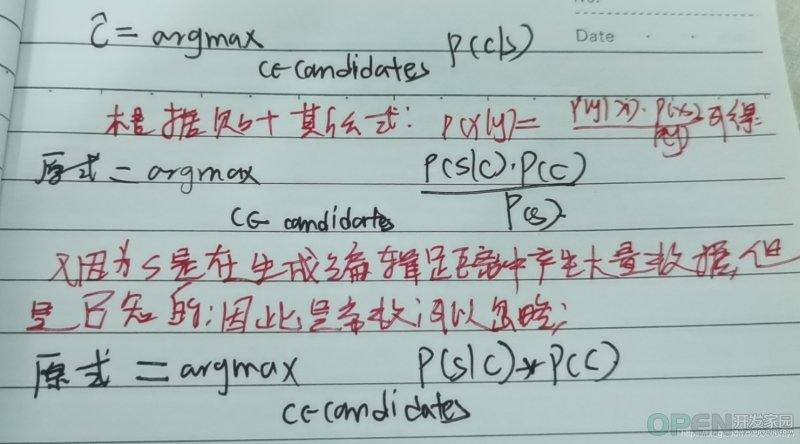 Date
ĉ = argmax P(c|s)
c∈candidates
根据贝叶斯公式: P(x|y) = P(y|x)·P(x) / P(y) 可得:
原式 = argmax P(s|c)·P(c) / P(s)
c∈ candidates
又因为s是在生成编辑距离中产生大量数据,但
是已知的;因此是常数可以忽略;
原式 = argmax P(s|c)*P(c)
c∈candidates
OPEN开发家园